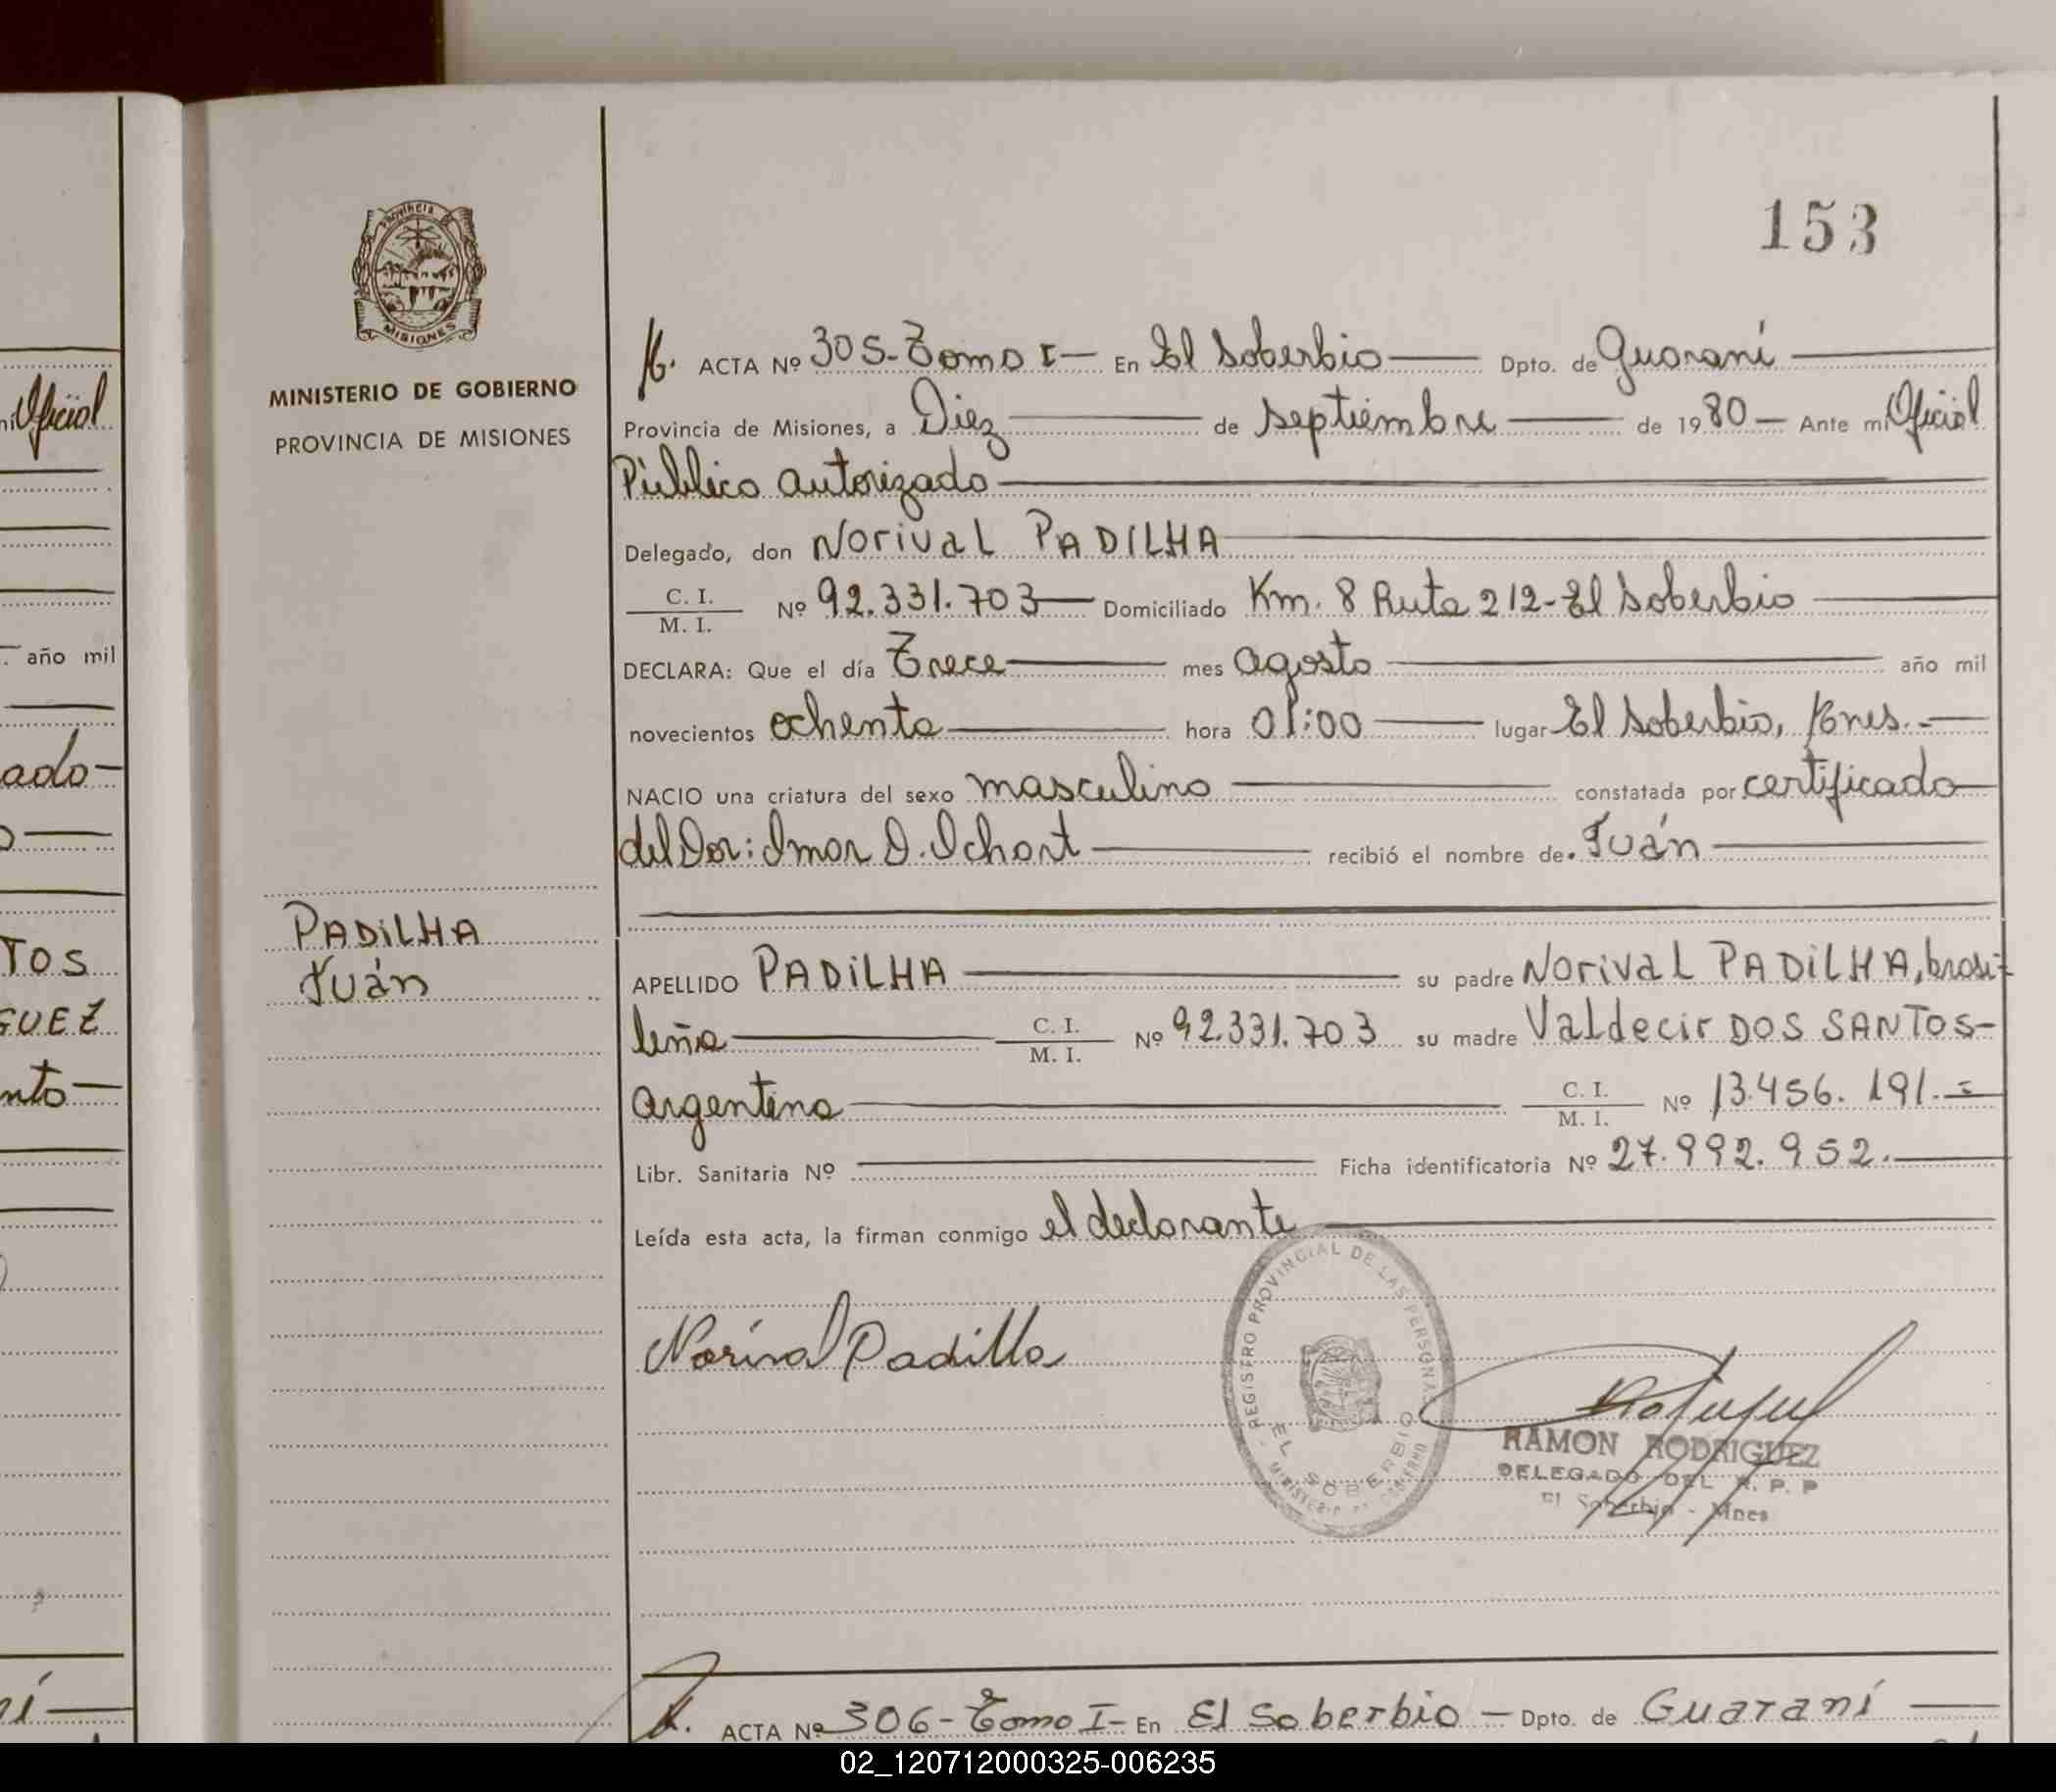 153
PROVINCIA
MISIONES
MINISTERIO DE GOBIERNO
PROVINCIA DE MISIONES
ACTA Nº 305-Tomo I- En El Soberbio Dpto. de Guaraní
Provincia de Misiones, a Diez de septiembre de 1980- Ante mi Oficial
Público autorizado
Delegado, don Norival PADILHA
C. I.
M. I. Nº 92.331.703 Domiciliado Km. 8 Ruta 212-El Soberbio
DECLARA: Que el día Trece mes agosto año mil
novecientos ochenta hora 01:00 lugar El Soberbio, Mnes.-
NACIO una criatura del sexo masculino constatada por certificado
del Dor: Omar D. Ichart recibió el nombre de Juán
PADiLHA
Juán
APELLIDO PADiLHA su padre Norival PADiLHA, brasi-
leña C. I. M. I. Nº 92.331.703 su madre Valdecir DOS SANTOS-
argentina C. I. M. I. Nº 13.456.191.=
Libr. Sanitaria Nº Ficha identificatoria Nº 27.992.952.
Leída esta acta, la firman conmigo el declarante
Norival Padilla
REGISTRO PROVINCIAL DE LAS PERSONAS
EL SOBERBIO
MINISTERIO DE GOBIERNO
RAMON RODRIGUEZ
DELEGADO DEL R. P. P
El Soberbio - Mnes
ACTA Nº 306-Tomo I- En El Soberbio - Dpto. de Guaraní
Oficial
año mil
ado-
TOS
GUEZ
nto
02_120712000325-006235